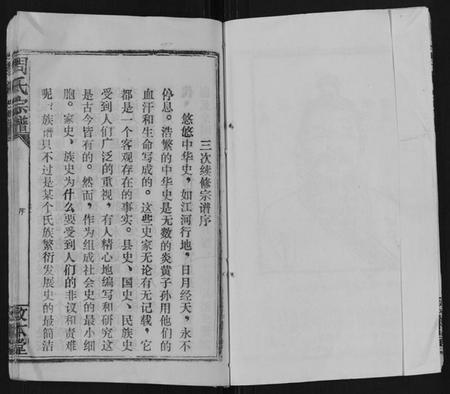 三次续修宗谱序
悠悠中华史，如江河行地，日月经天，永不
停息。浩繁的中华史是无数的炎黄子孙用他们的
血汗和生命写成的。这些史家无论有无记载，它
都是一个客观存在的事实。县史、国史、民族史
受到人们广泛的重视，有人精心地编写和研究这
是古今皆有的。然而，作为组成社会史的最小细
胞。家史、族史为什么要受到人们的非议和责难
呢，族谱只不过是某个氏族繁衍发展史的最简洁
周氏宗谱
序
敦本堂